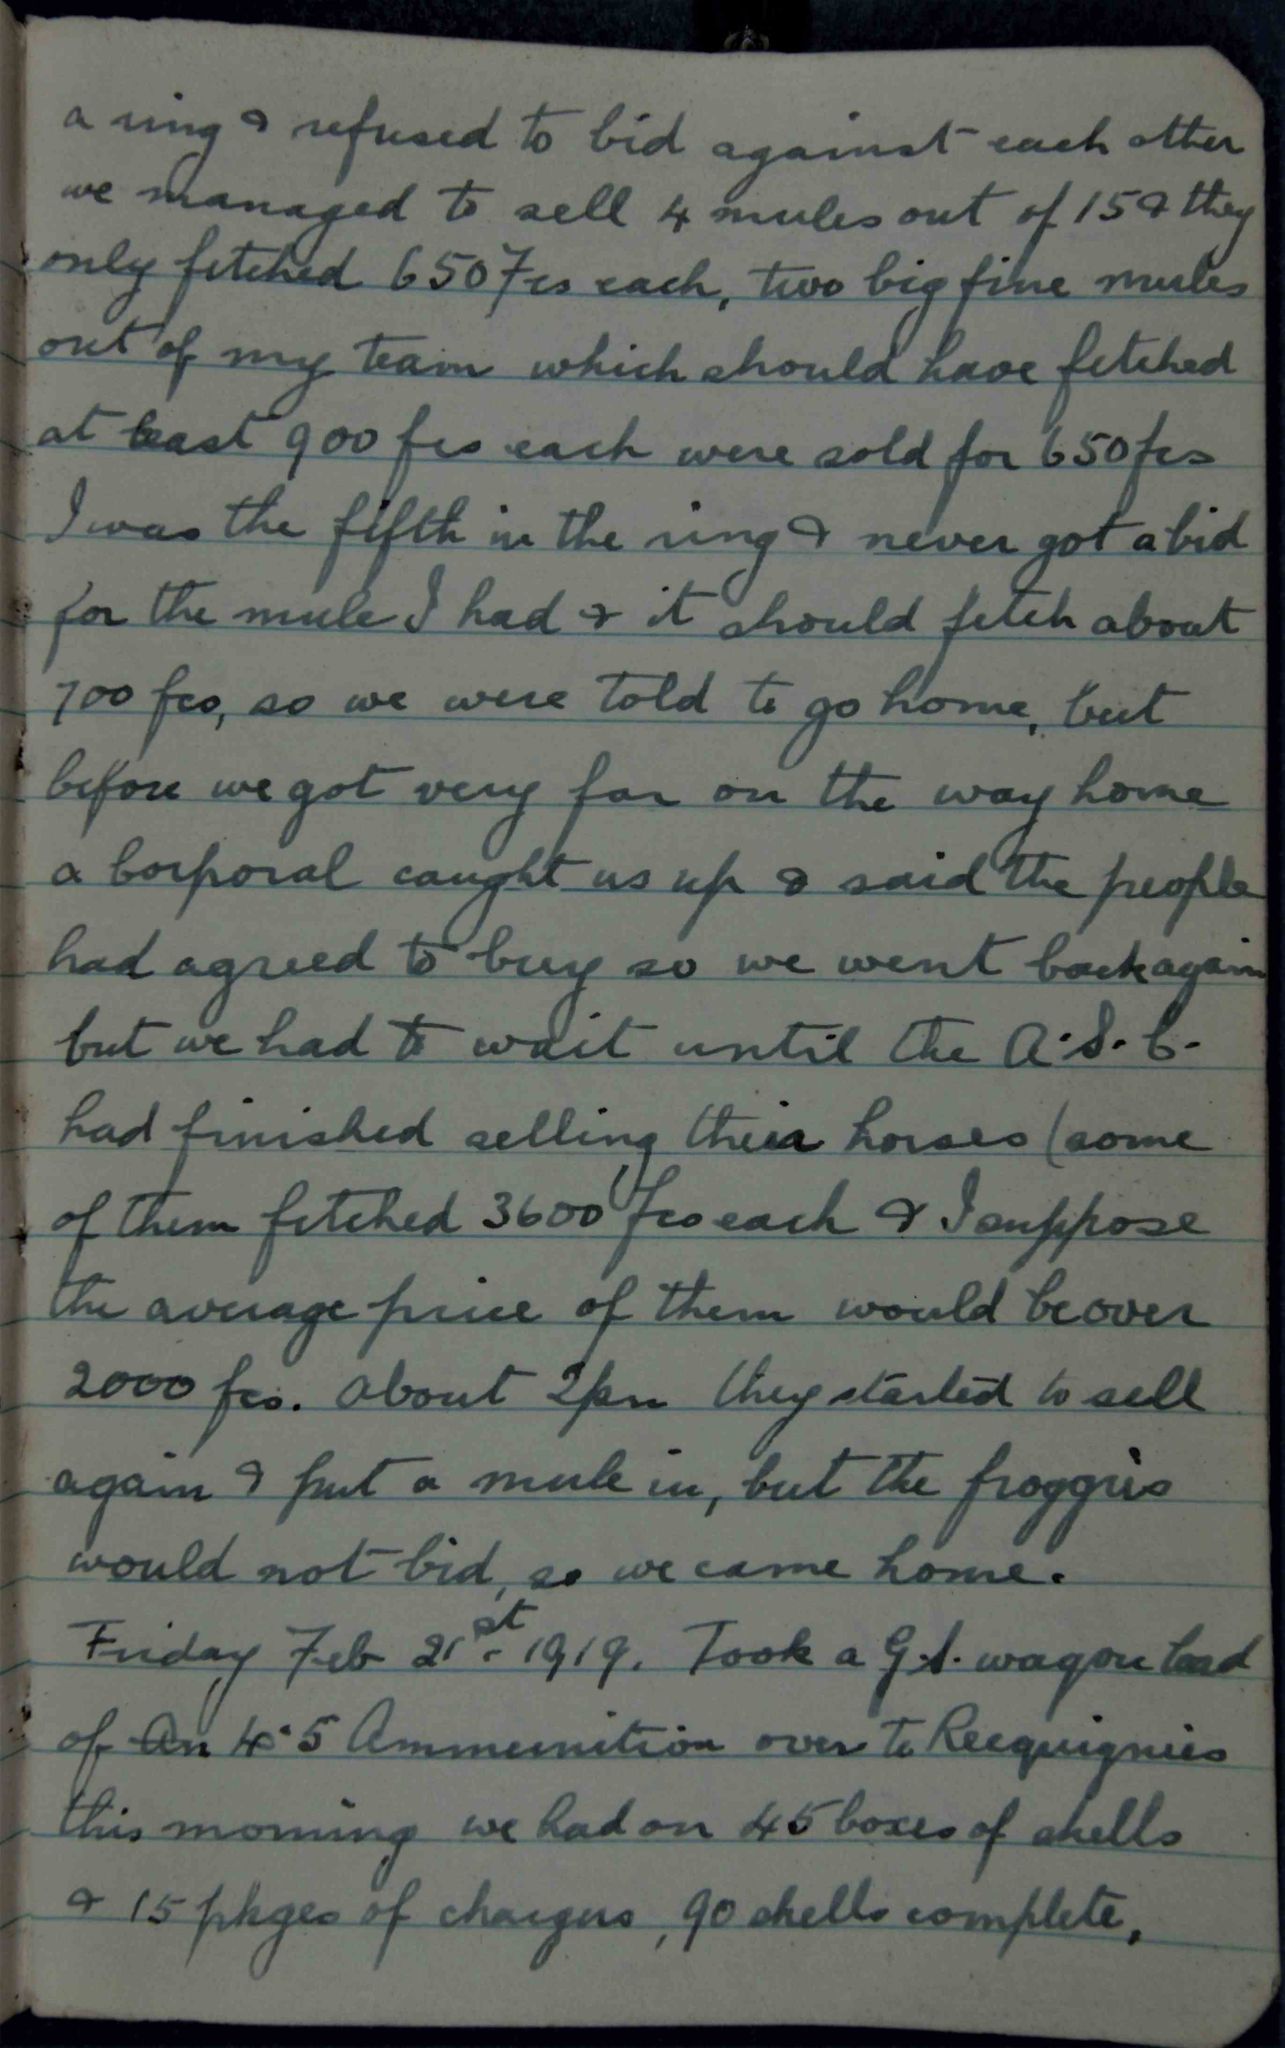 a ring & refused to bid against each other
we managed to sell 4 mules out of 15 & they
only fetched 650 Fcs each, two big fine mules
out of my team which should have fetched
at least 900 fcs each were sold for 650 fcs
I was the fifth in the ring & never got a bid
for the mule I had & it should fetch about
700 fcs, so we were told to go home, but
before we got very far on the way home
a Corporal caught us up & said the people
had agreed to buy so we went back again
but we had to wait until the A.S.C.
had finished selling their horses (some
of them fetched 3600 Fcs each & I suppose
the average price of them would be over
2000 fcs. About 2pm they started to sell
again & put a mule in, but the froggies
would not bid, so we came home.
Friday Feb 21st 1919. Took a G.S. wagon load
of An 4.5 Ammunition over to Recquignies
this morning we had on 45 boxes of shells
& 15 pkges of charges, 90 shells complete,